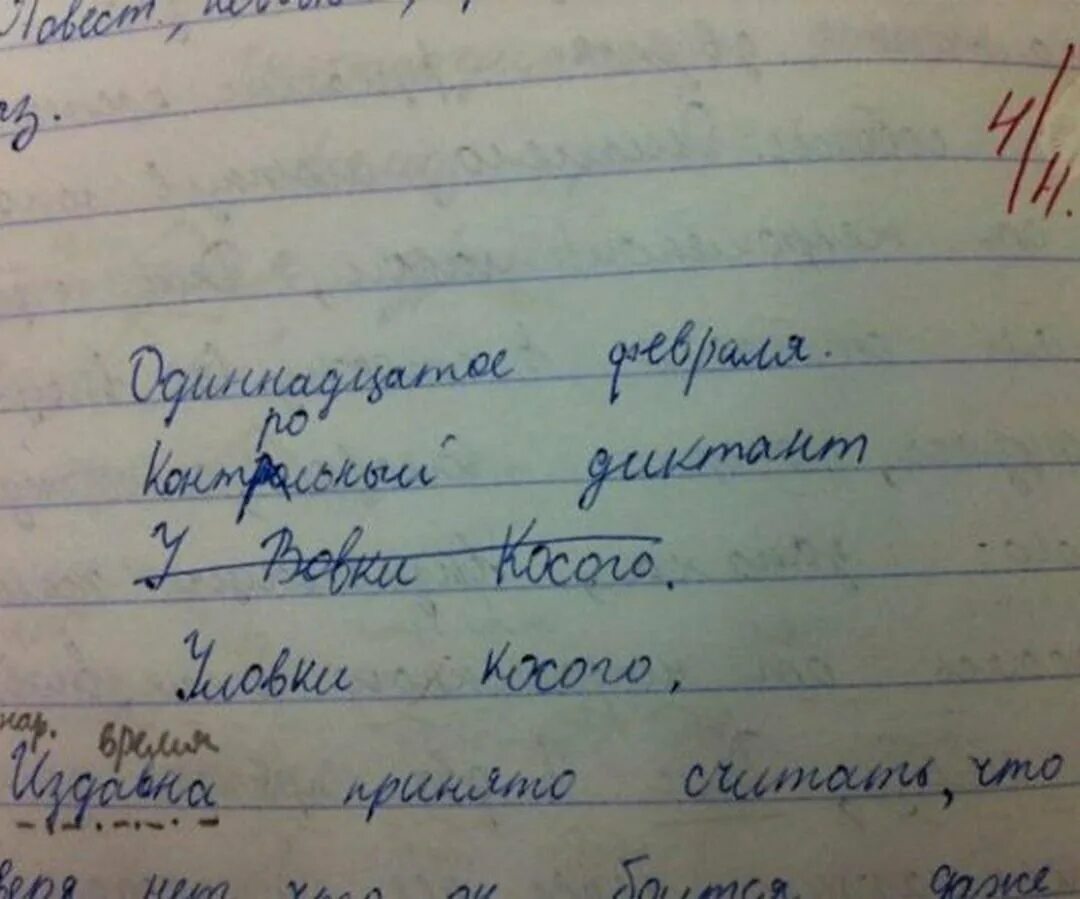 Повест
аз.
4/4.
Одиннадцатое февраля.
ро
Контрольный диктант
У Вовки Косого.
Уловки косого.
нар. время
Издавна принято считать, что
зверя нет, чего он боится даже